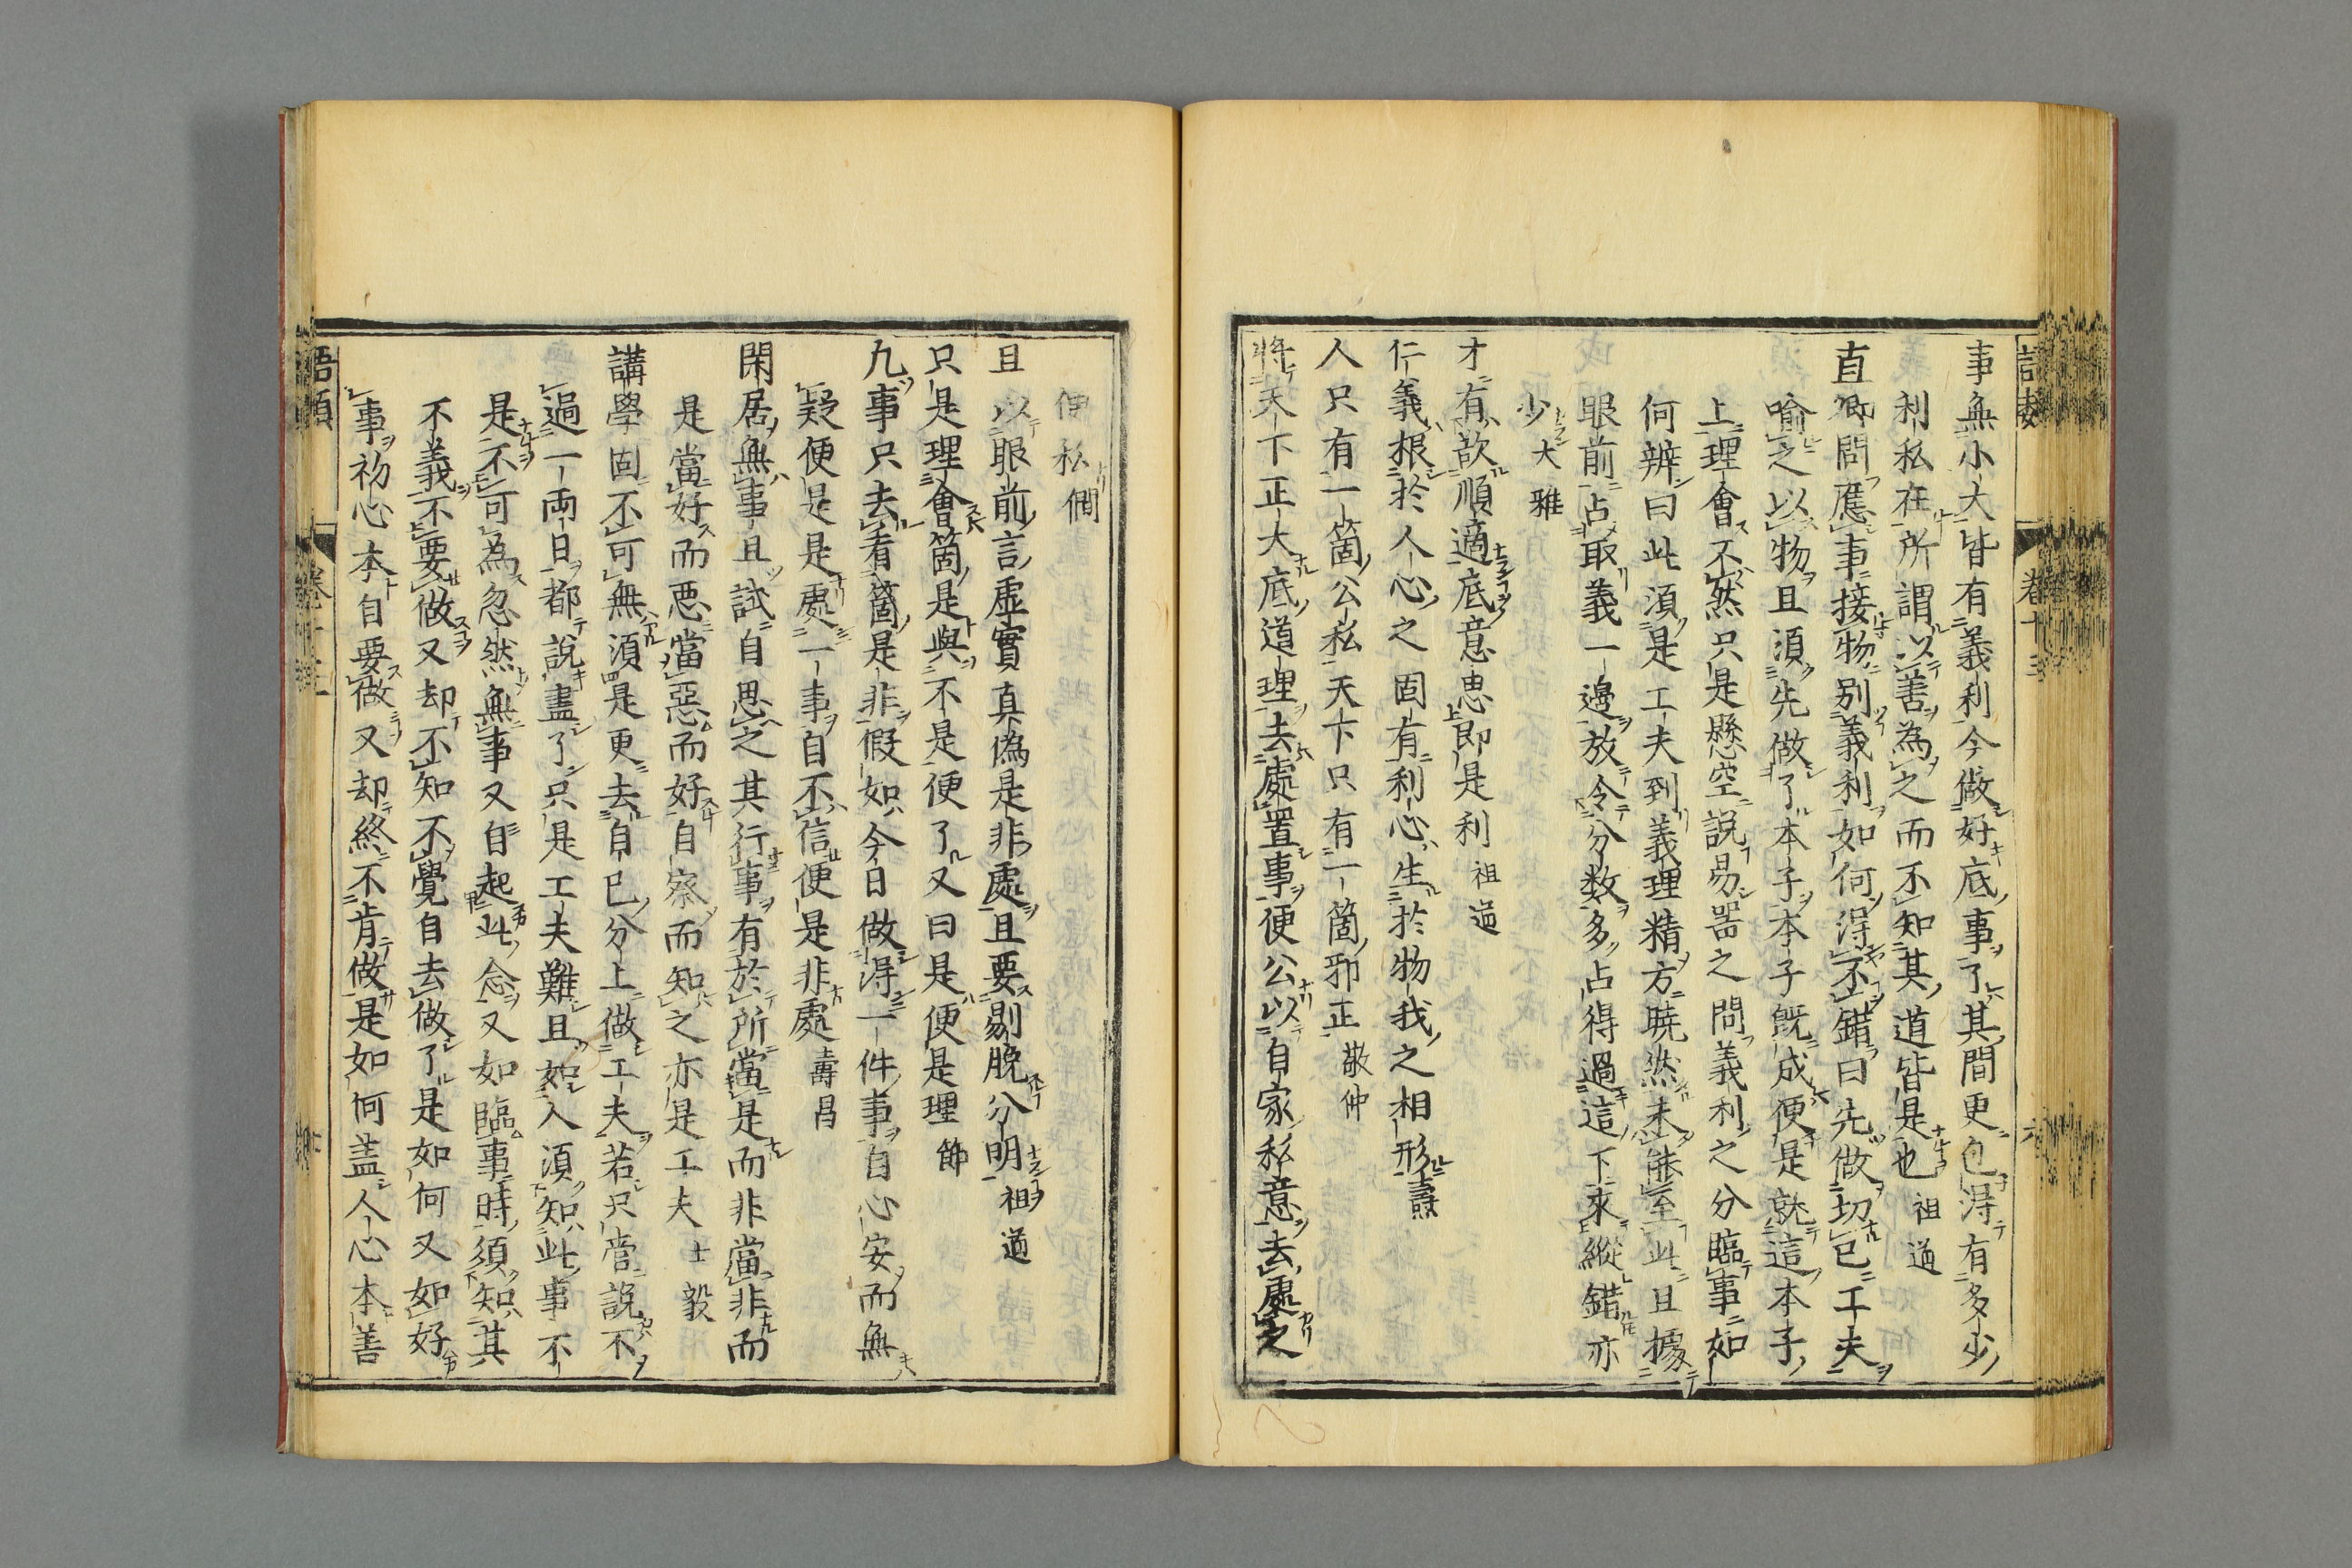 事無小大皆有義利今做好底事了其間更包得有多少
利私在所謂以善為之而不知其道皆是也 祖道
直卿問應事接物別義利如何得不錯曰先做切已工夫
喻之以物且須先做了本子本子既成便是就這本子
上理會不然只是懸空說易噐之問義利之分臨事如
何辨曰此須是工夫到義理精方曉然未能至此且據
眼前占取義一邊放令分数多占得過這下來縱錯亦
少 大雅
才有欲順適底意思即是利 祖道
仁義根於人心之固有利心生於物我之相形 燾
人只有一箇公私天下只有一箇邪正 敬仲
將天下正大底道理去處置事便公以自家私意去處之
便私 僩
且以眼前言虛實真偽是非處且要剔脫分明 祖道
只是理會箇是與不是便了又曰是便是理 節
凡事只去看箇是非假如今日做得一件事自心安而無
疑便是是處一事自不信便是非處 壽昌
閑居無事且試自思之其行事有於所當是而非當非而
是當好而惡當惡而好自察而知之亦是工夫 士毅
講學固不可無須是更去自已分上做工夫若只管說不
過一兩日都說盡了只是工夫難且如人須知此事不
是不可為忽然無事又自起此念又如臨事時須知其
不義不要做又却不知不覺自去做了是如何又如好
事初心本自要做又却終不肯做是如何盖人心本善
語類 卷十三